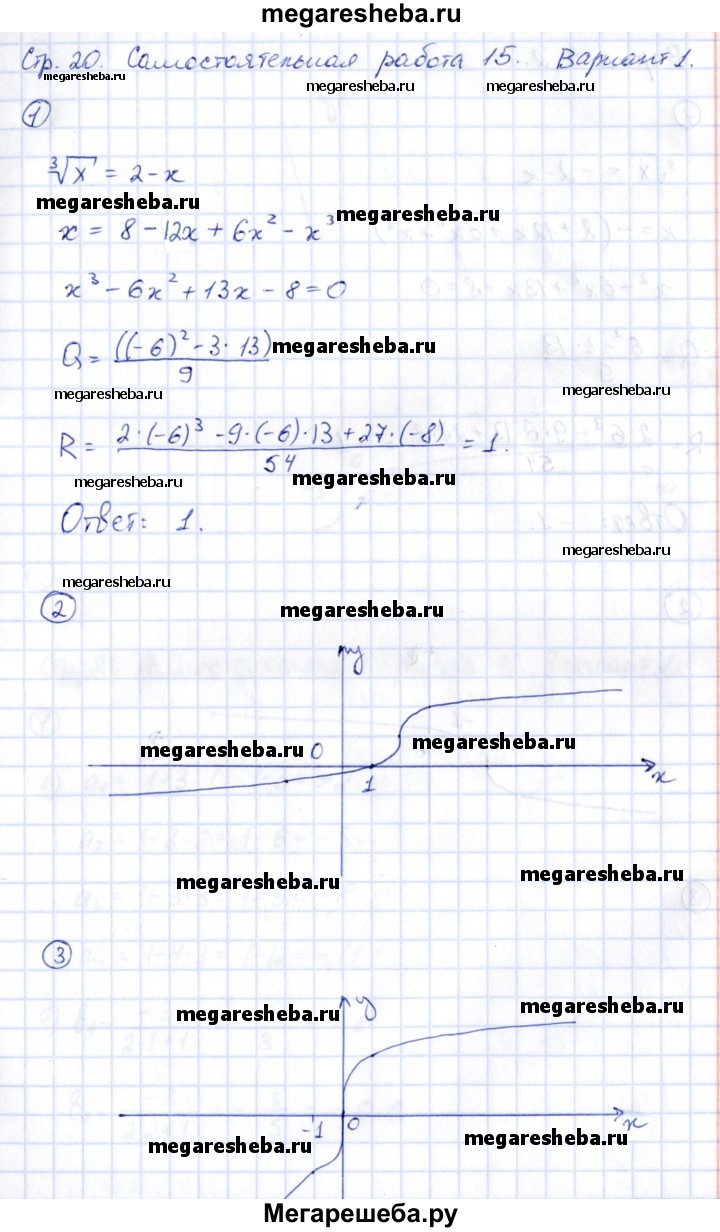 megaresheba.ru
Стр. 20. Самостоятельная работа 15. Вариант 1.
megaresheba.ru megaresheba.ru megaresheba.ru
1
∛x = 2 - x
megaresheba.ru megaresheba.ru
x = 8 - 12x + 6x² - x³
x³ - 6x² + 13x - 8 = 0
Q = ((-6)² - 3·13) / 9
megaresheba.ru
megaresheba.ru megaresheba.ru
R = 2·(-6)³ - 9·(-6)·13 + 27·(-8) / 54 = 1.
megaresheba.ru megaresheba.ru
Ответ: 1.
megaresheba.ru
megaresheba.ru
2
megaresheba.ru
y
megaresheba.ru 0 megaresheba.ru
1 x
megaresheba.ru megaresheba.ru
3
y
megaresheba.ru megaresheba.ru
-1 0 x
megaresheba.ru megaresheba.ru
Мегарешеба.ру